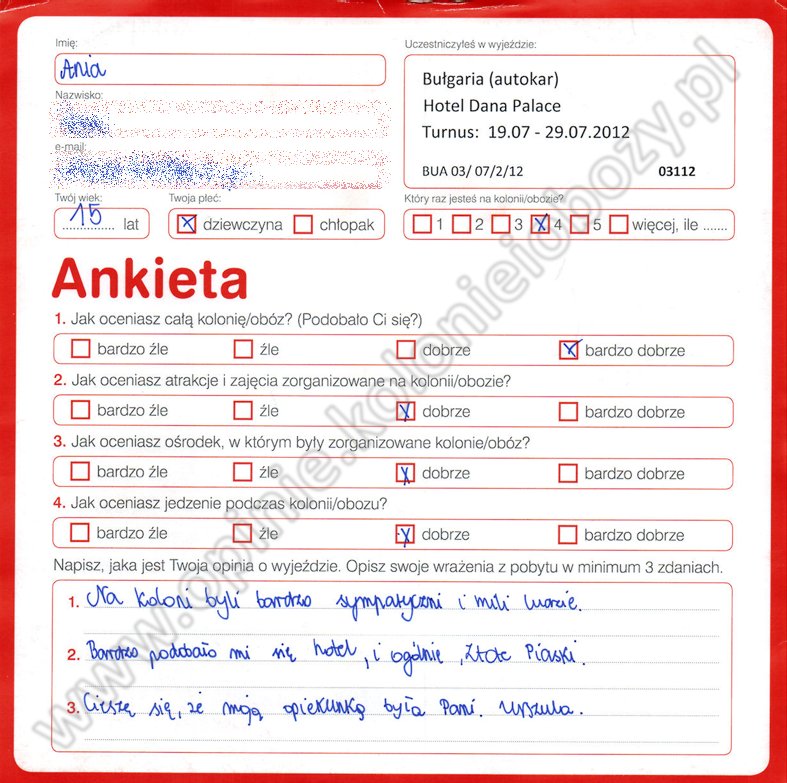 Imię:
Uczestniczyłeś w wyjeździe:
Ania
Bułgaria (autokar)
Hotel Dana Palace
Turnus: 19.07 - 29.07.2012
BUA 03/ 07/2/12 03112
Nazwisko:
e-mail:
Twój wiek: Twoja płeć: Który raz jesteś na kolonii/obozie?
15 lat dziewczyna chłopak 1 2 3 4 5 więcej, ile .......
Ankieta
1. Jak oceniasz całą kolonię/obóz? (Podobało Ci się?)
bardzo źle źle dobrze bardzo dobrze
2. Jak oceniasz atrakcje i zajęcia zorganizowane na kolonii/obozie?
bardzo źle źle dobrze bardzo dobrze
3. Jak oceniasz ośrodek, w którym były zorganizowane kolonie/obóz?
bardzo źle źle dobrze bardzo dobrze
4. Jak oceniasz jedzenie podczas kolonii/obozu?
bardzo źle źle dobrze bardzo dobrze
Napisz, jaka jest Twoja opinia o wyjeździe. Opisz swoje wrażenia z pobytu w minimum 3 zdaniach.
1. Na koloni byli bardzo sympatyczni i mili
2. Bardzo podobało mi się hotel, i ogólnie, Złote Piaski.
3. Cieszę się, że moją opiekunką była Pani. Urszula.
www.opinie.kolonieiobozy.pl